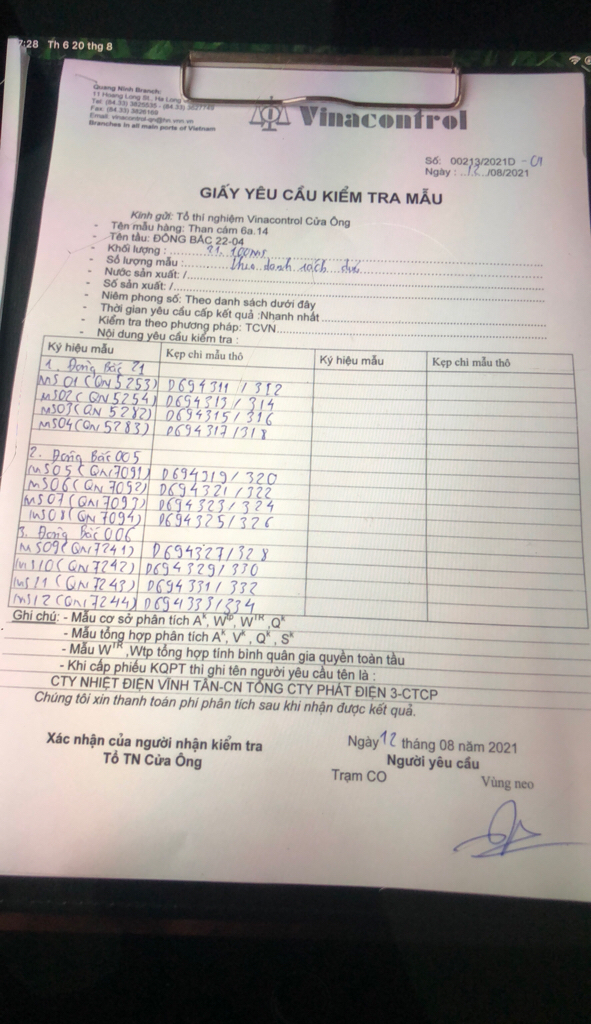 7:28 Th 6 20 thg 8
Quang Ninh Branch:
11 Hoang Long St., Ha Long
Tel: (84.33) 3825535 - (84.33) 3827749
Fax: (84.33) 3826169
Email: vinacontrol-qn@hn.vnn.vn
Branches in all main ports of Vietnam
Vinacontrol
Số: 00213/2021D - 01
Ngày : 12 /08/2021
GIẤY YÊU CẦU KIỂM TRA MẪU
Kính gửi: Tổ thí nghiệm Vinacontrol Cửa Ông
- Tên mẫu hàng: Than cám 6a.14
- Tên tàu: ĐÔNG BẮC 22-04
- Khối lượng : 21.100MS
- Số lượng mẫu : theo danh sách dưới
- Nước sản xuất: /
- Số sản xuất: /
- Niêm phong số: Theo danh sách dưới đây
- Thời gian yêu cầu cấp kết quả :Nhanh nhất
- Kiểm tra theo phương pháp: TCVN
- Nội dung yêu cầu kiểm tra :
Ký hiệu mẫu Kẹp chì mẫu thô Ký hiệu mẫu Kẹp chì mẫu thô
1. Đông Bắc 21
MS01 (QN 5253) D694311 / 312
MS02 (QN 5254) D694313 / 314
MS03 (QN 5282) D694315 / 316
MS04 (QN 5283) D694317 / 318
2. Đông Bắc 005
MS05 (QN7091) D694319 / 320
MS06 (QN 7092) D694321 / 322
MS07 (QN7093) D694323 / 324
MS08 (QN 7094) D694325 / 326
3. Đông Bắc 006
MS09 (QN7241) D694327 / 328
MS10 (QN 7242) D694329 / 330
MS11 (QN 7243) D694331 / 332
MS12 (QN7244) D694333 / 334
Ghi chú: - Mẫu cơ sở phân tích Aᵏ, Wᵗᵖ, Wᵀᴿ, Qᵏ
- Mẫu tổng hợp phân tích Aᵏ, Vᵏ, Qᵏ, Sᵏ
- Mẫu Wᵀᴿ, Wtp tổng hợp tính bình quân gia quyền toàn tầu
- Khi cấp phiếu KQPT thì ghi tên người yêu cầu tên là :
CTY NHIỆT ĐIỆN VĨNH TÂN-CN TỔNG CTY PHÁT ĐIỆN 3-CTCP
Chúng tôi xin thanh toán phí phân tích sau khi nhận được kết quả.
Xác nhận của người nhận kiểm tra
Tổ TN Cửa Ông
Ngày 12 tháng 08 năm 2021
Người yêu cầu
Trạm CO Vùng neo